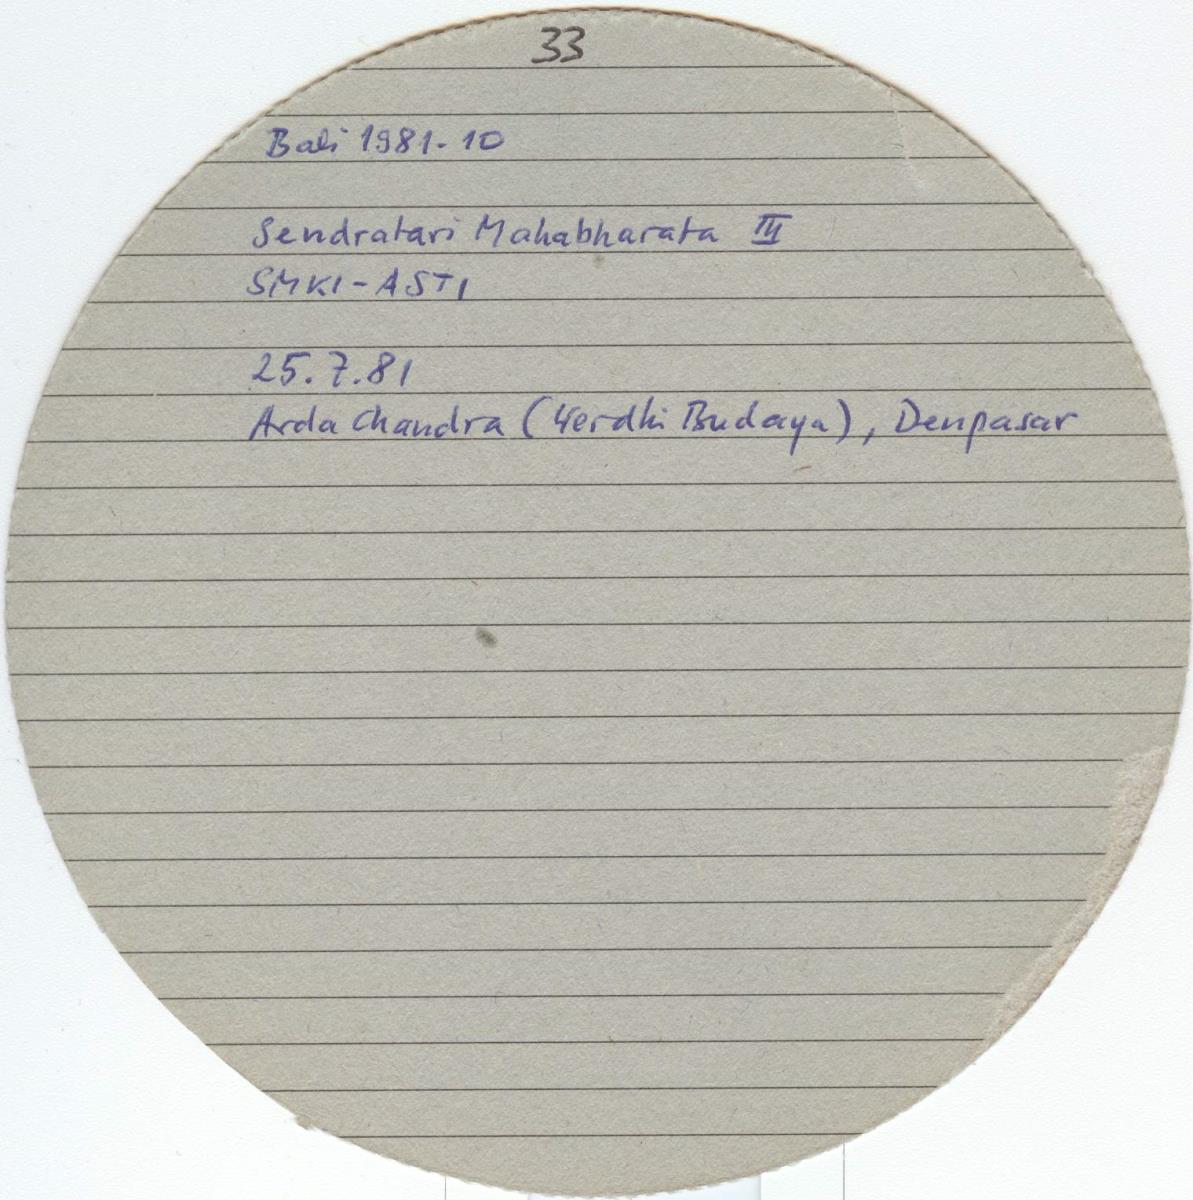 33
Bali 1981-10
Sendratari Mahabharata III
SMKI-ASTI
25.7.81
Arda Chandra (Werdhi Budaya), Denpasar